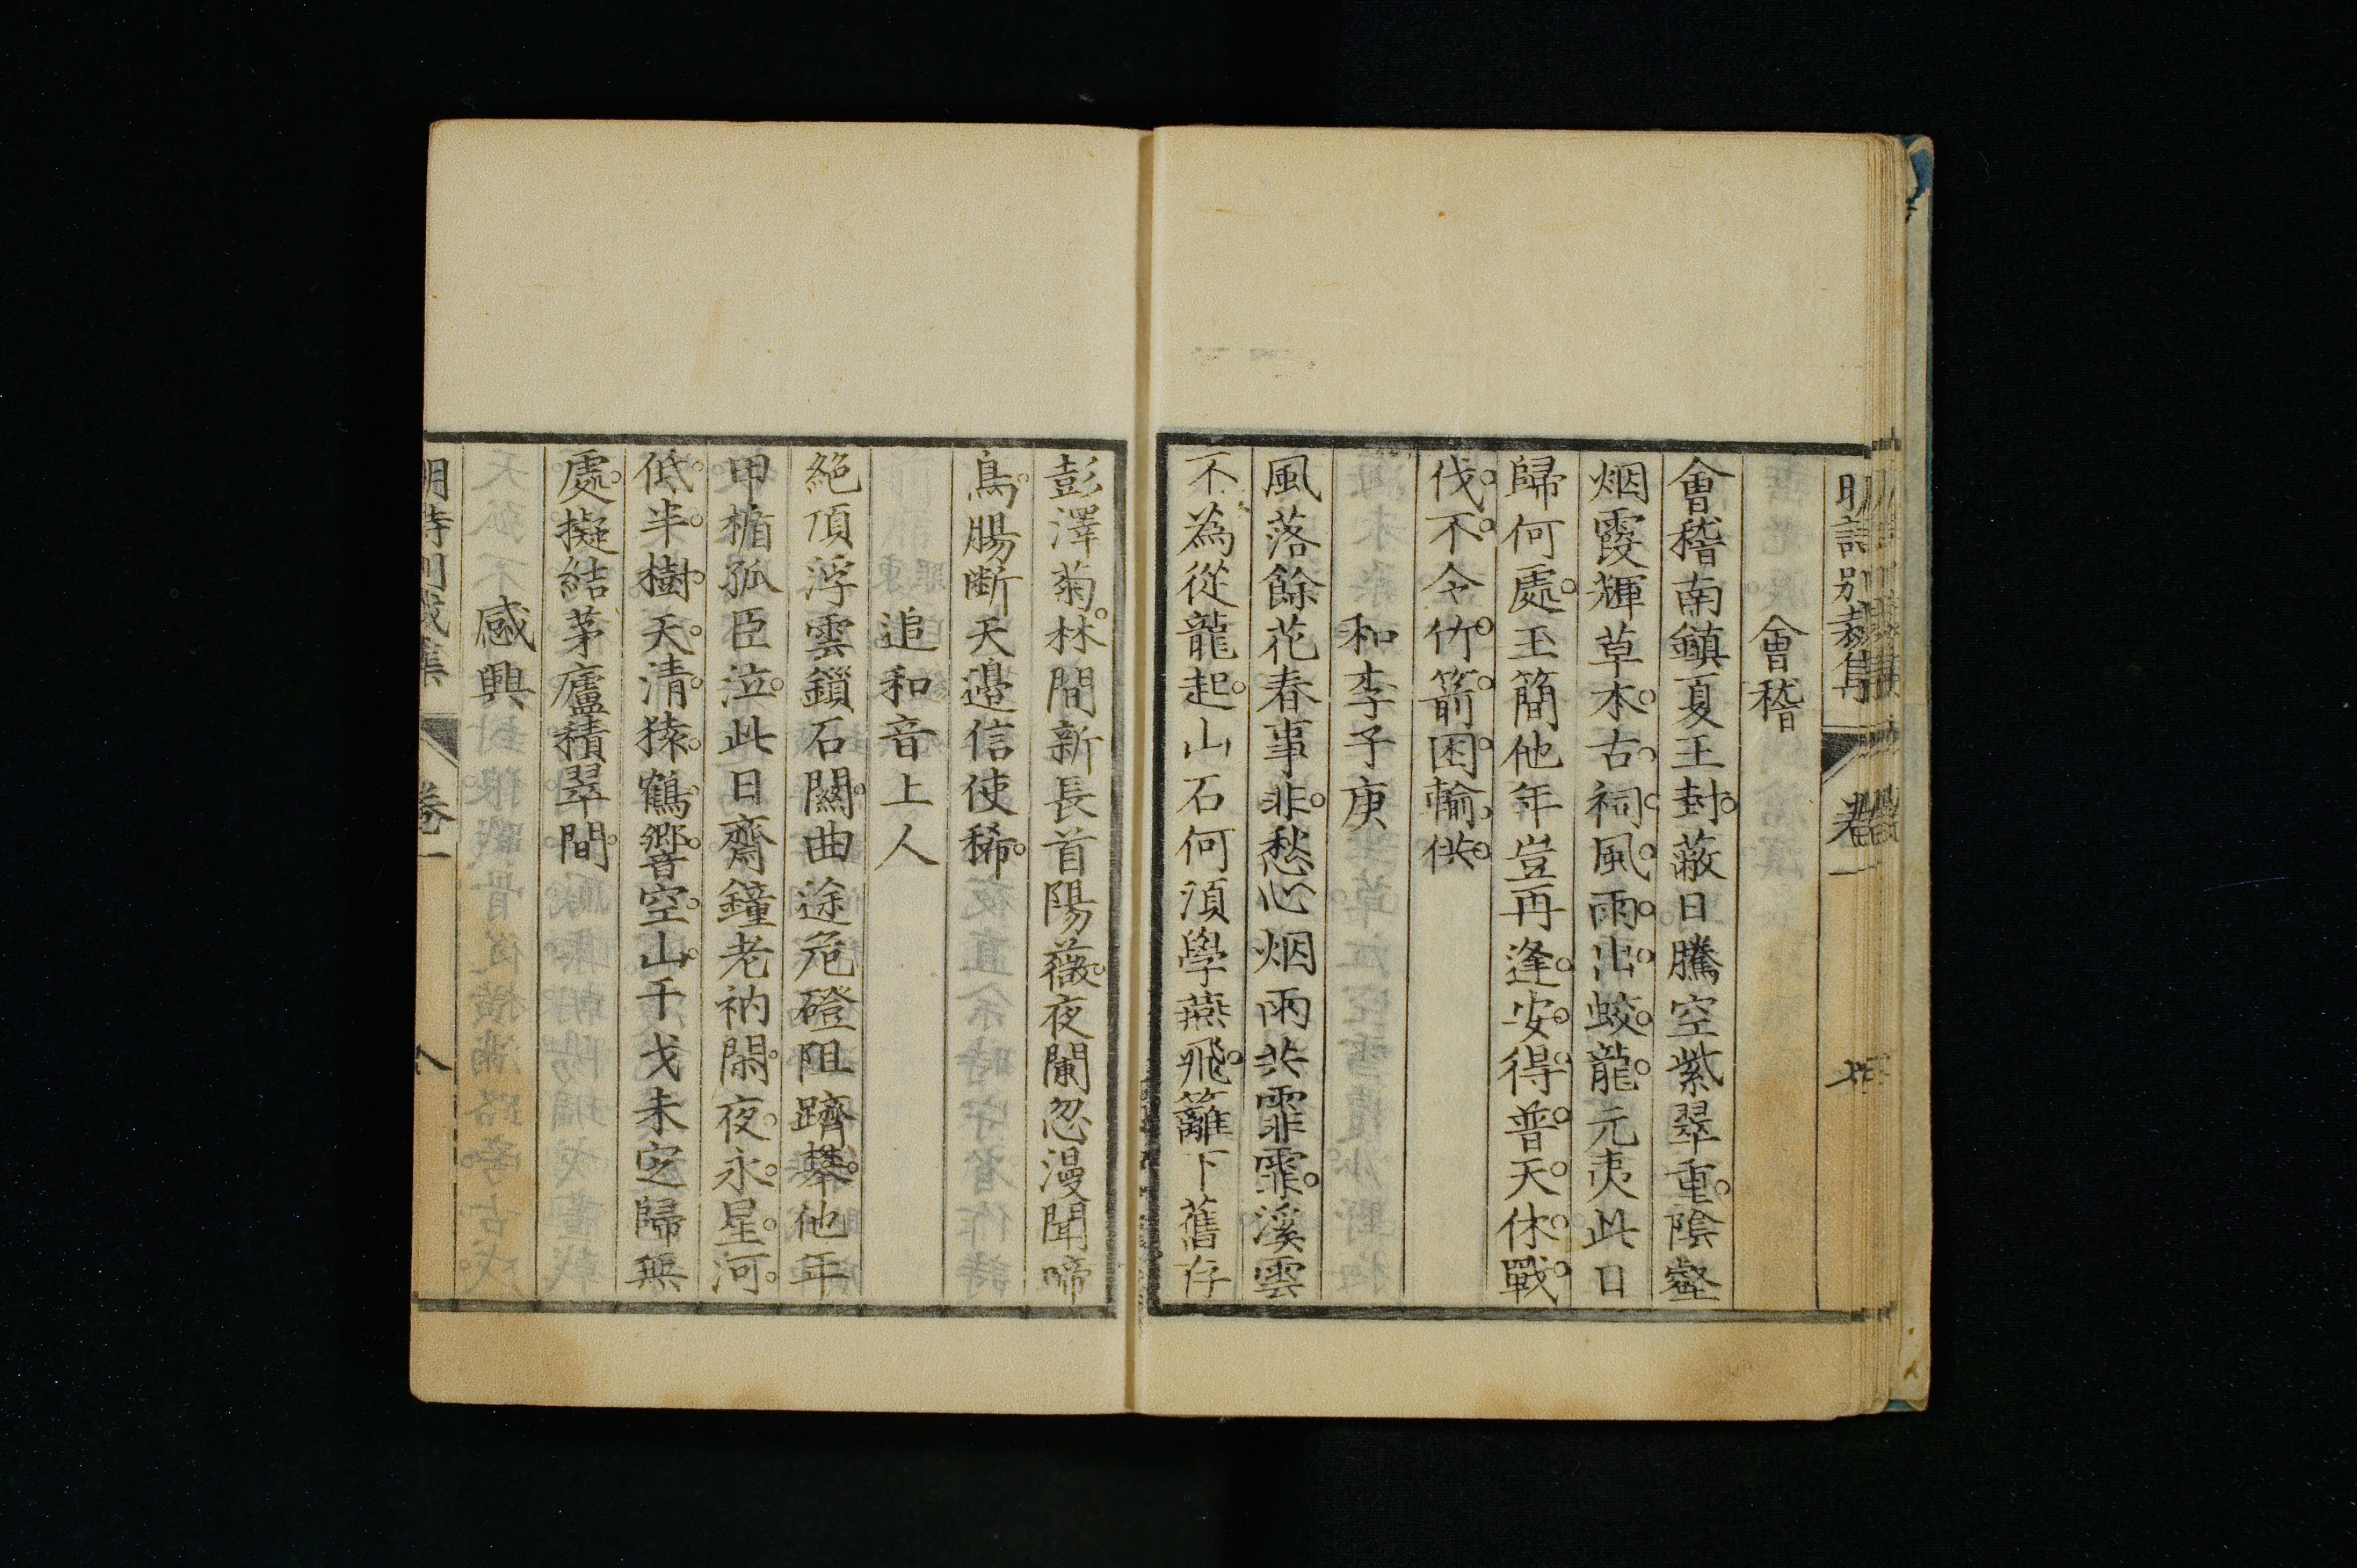 明詩別裁集 卷一 七
會稽
會稽南鎮夏王封蔽日騰空紫翠重陰壑
烟霞輝草木古祠風雨出蛟龍元夷此日
歸何處玉簡他年豈再逢安得普天休戰
伐不令竹箭困輸供
和李子庚
風落餘花春事非愁心烟雨共霏霏溪雲
不為從龍起山石何須學燕飛籬下舊存
彭澤菊林間新長首陽薇夜闌忽漫聞啼
鳥腸斷天邊信使稀
追和音上人
絕頂浮雲鎖石關曲途危磴阻躋攀他年
甲楯孤臣泣此日齋鐘老衲閑夜永星河
低半樹天清猿鶴響空山干戈未定歸無
處擬結茅廬積翠間
感興
明詩別裁集 卷一 八